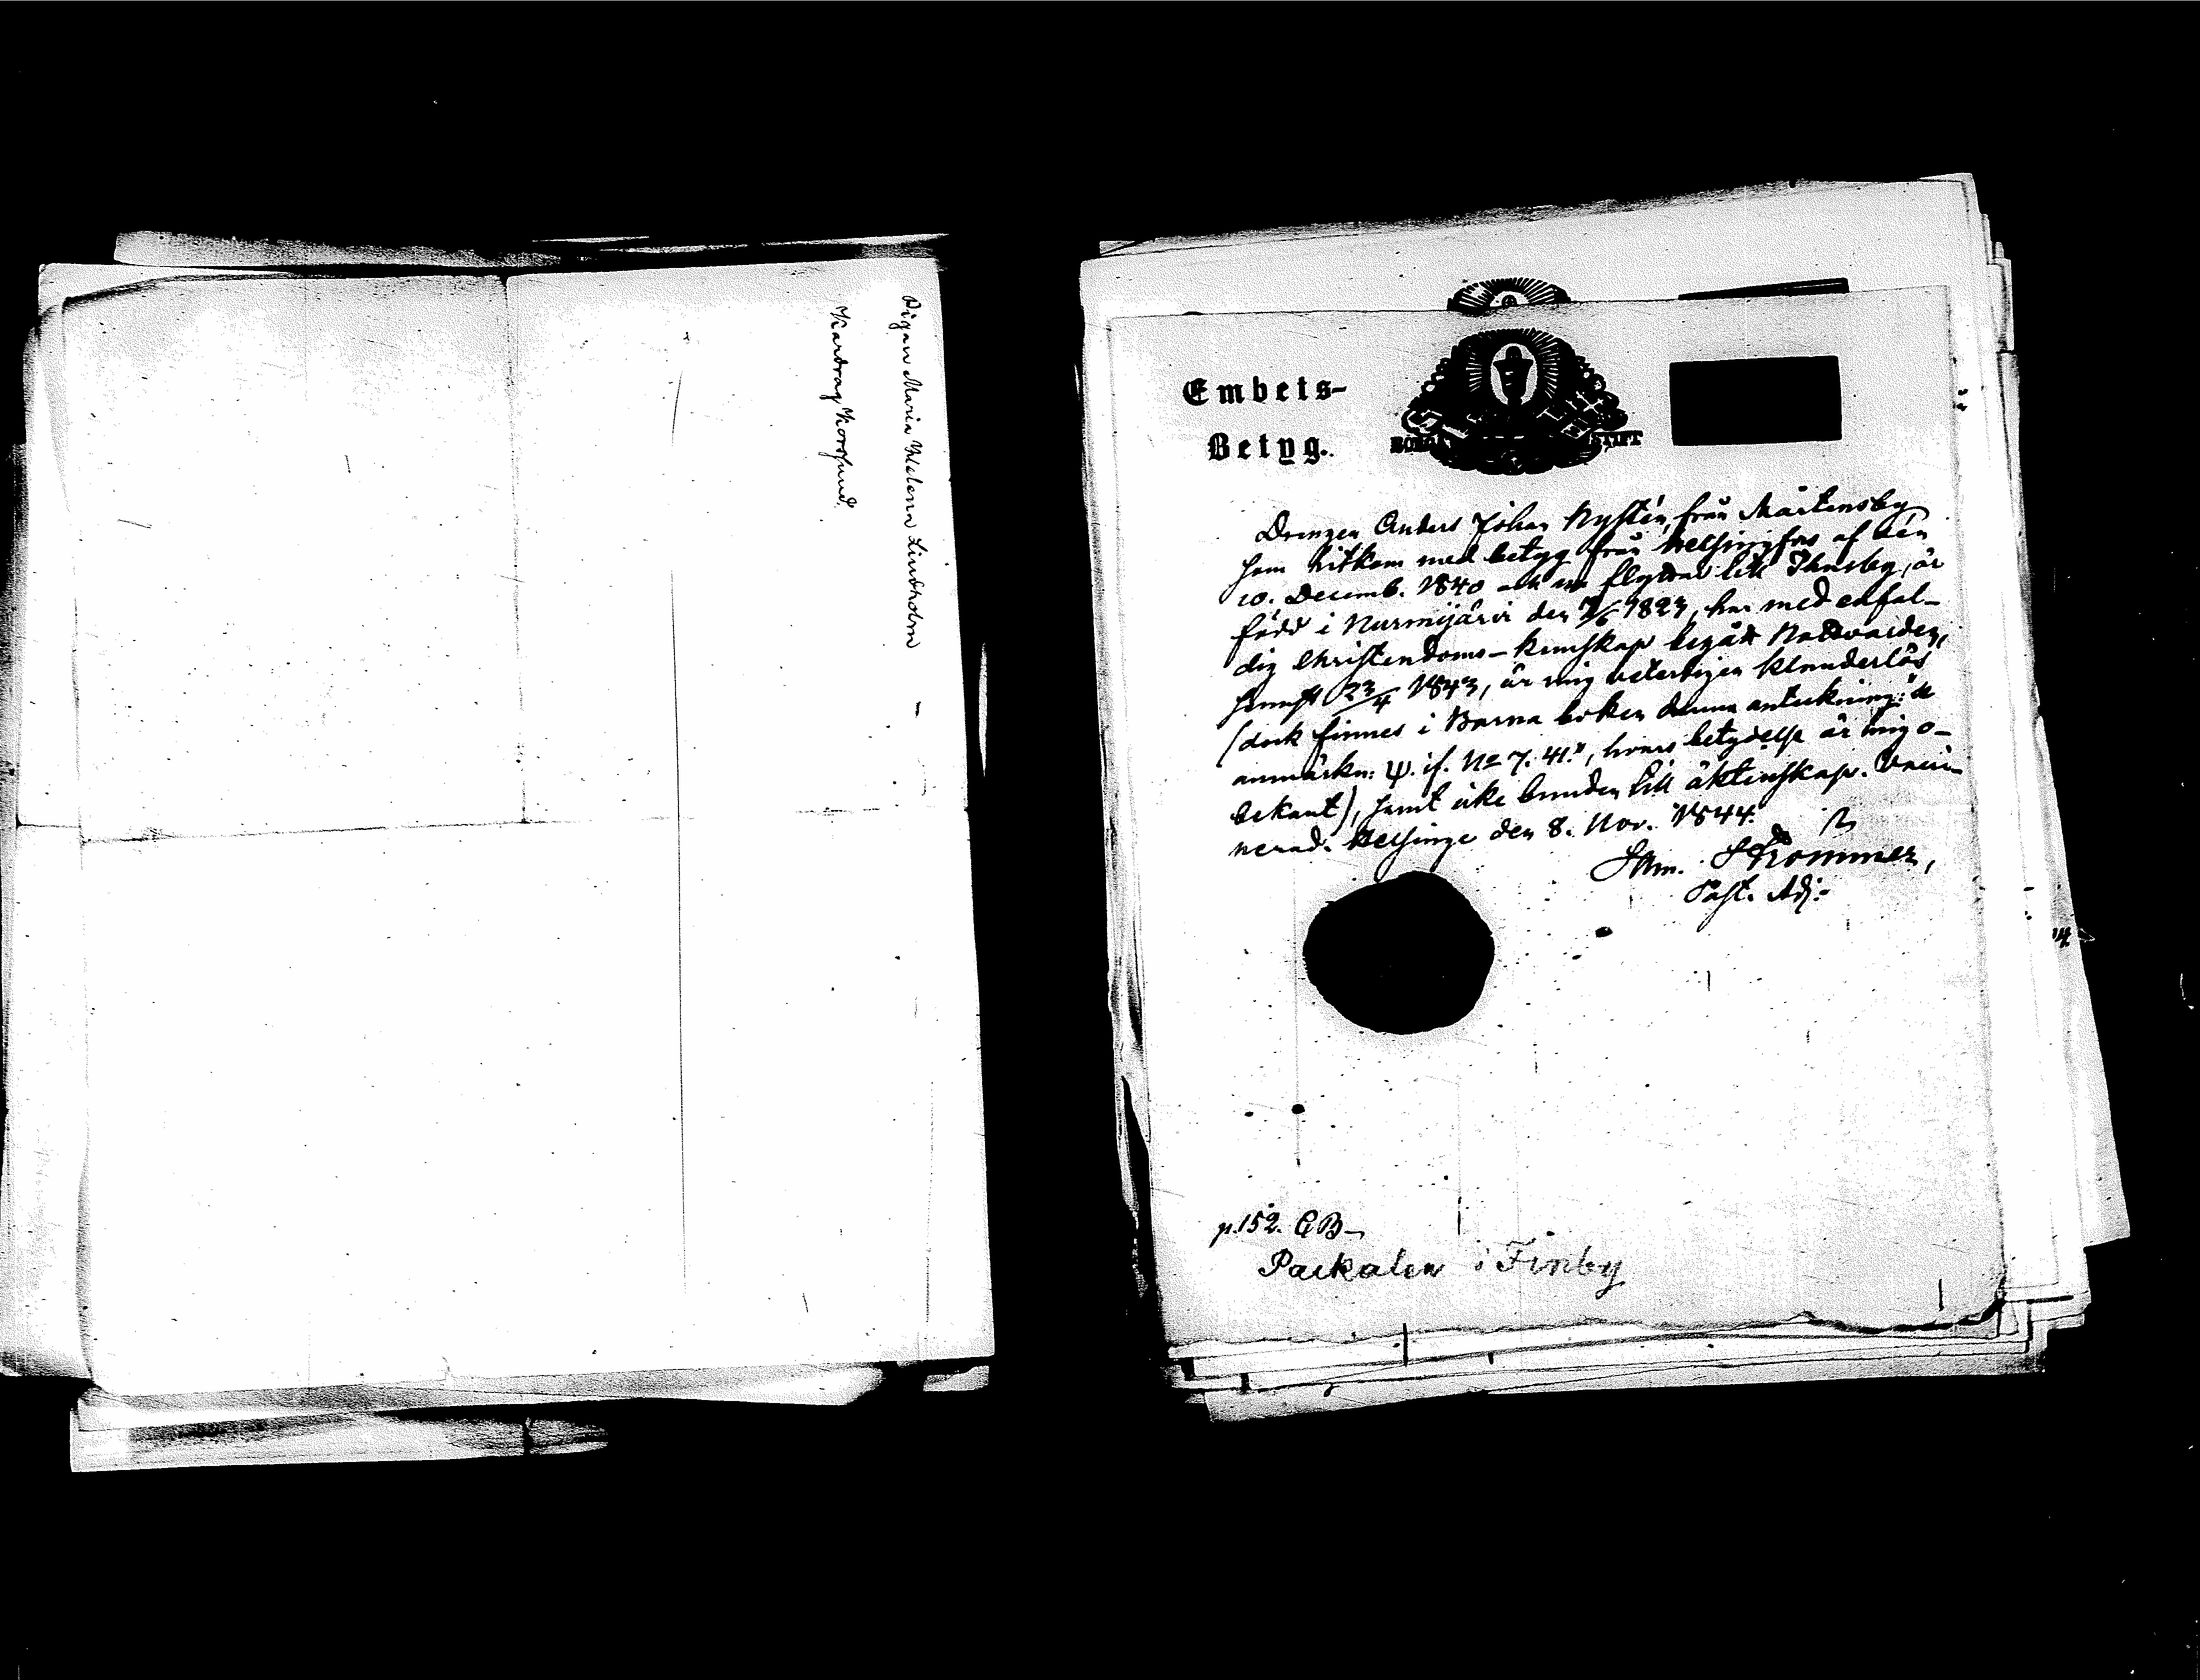 Pigan Maria Helena Lindholm
Kardrag Korssund
Embets-
Betyg.
STIFT
Drengen Anders Johan Nystén, från Mårtensby
som hitkom med betyg från Helsingfors af den
10. Decemb. 1840 och nu flyttar till Thusby, är
född i Nurmijärvi den 7/6 1823, har med enfal-
dig Christendoms-kunskap begått Nattvarden,
senast 23/4 1843, är mig veterligen klanderlös
(dock finnes i Barna boken denna anteckning: "se
anmärkn: ψ. if. No 7. 41.", hvars betydelse är mig o-
bekant), samt icke bunden till äktenskap. Vacci-
nerad. Helsinge den 8. Nov. 1844.
Strommer,
Past. Adj:
p. 152. C B-
Packalen i Finby